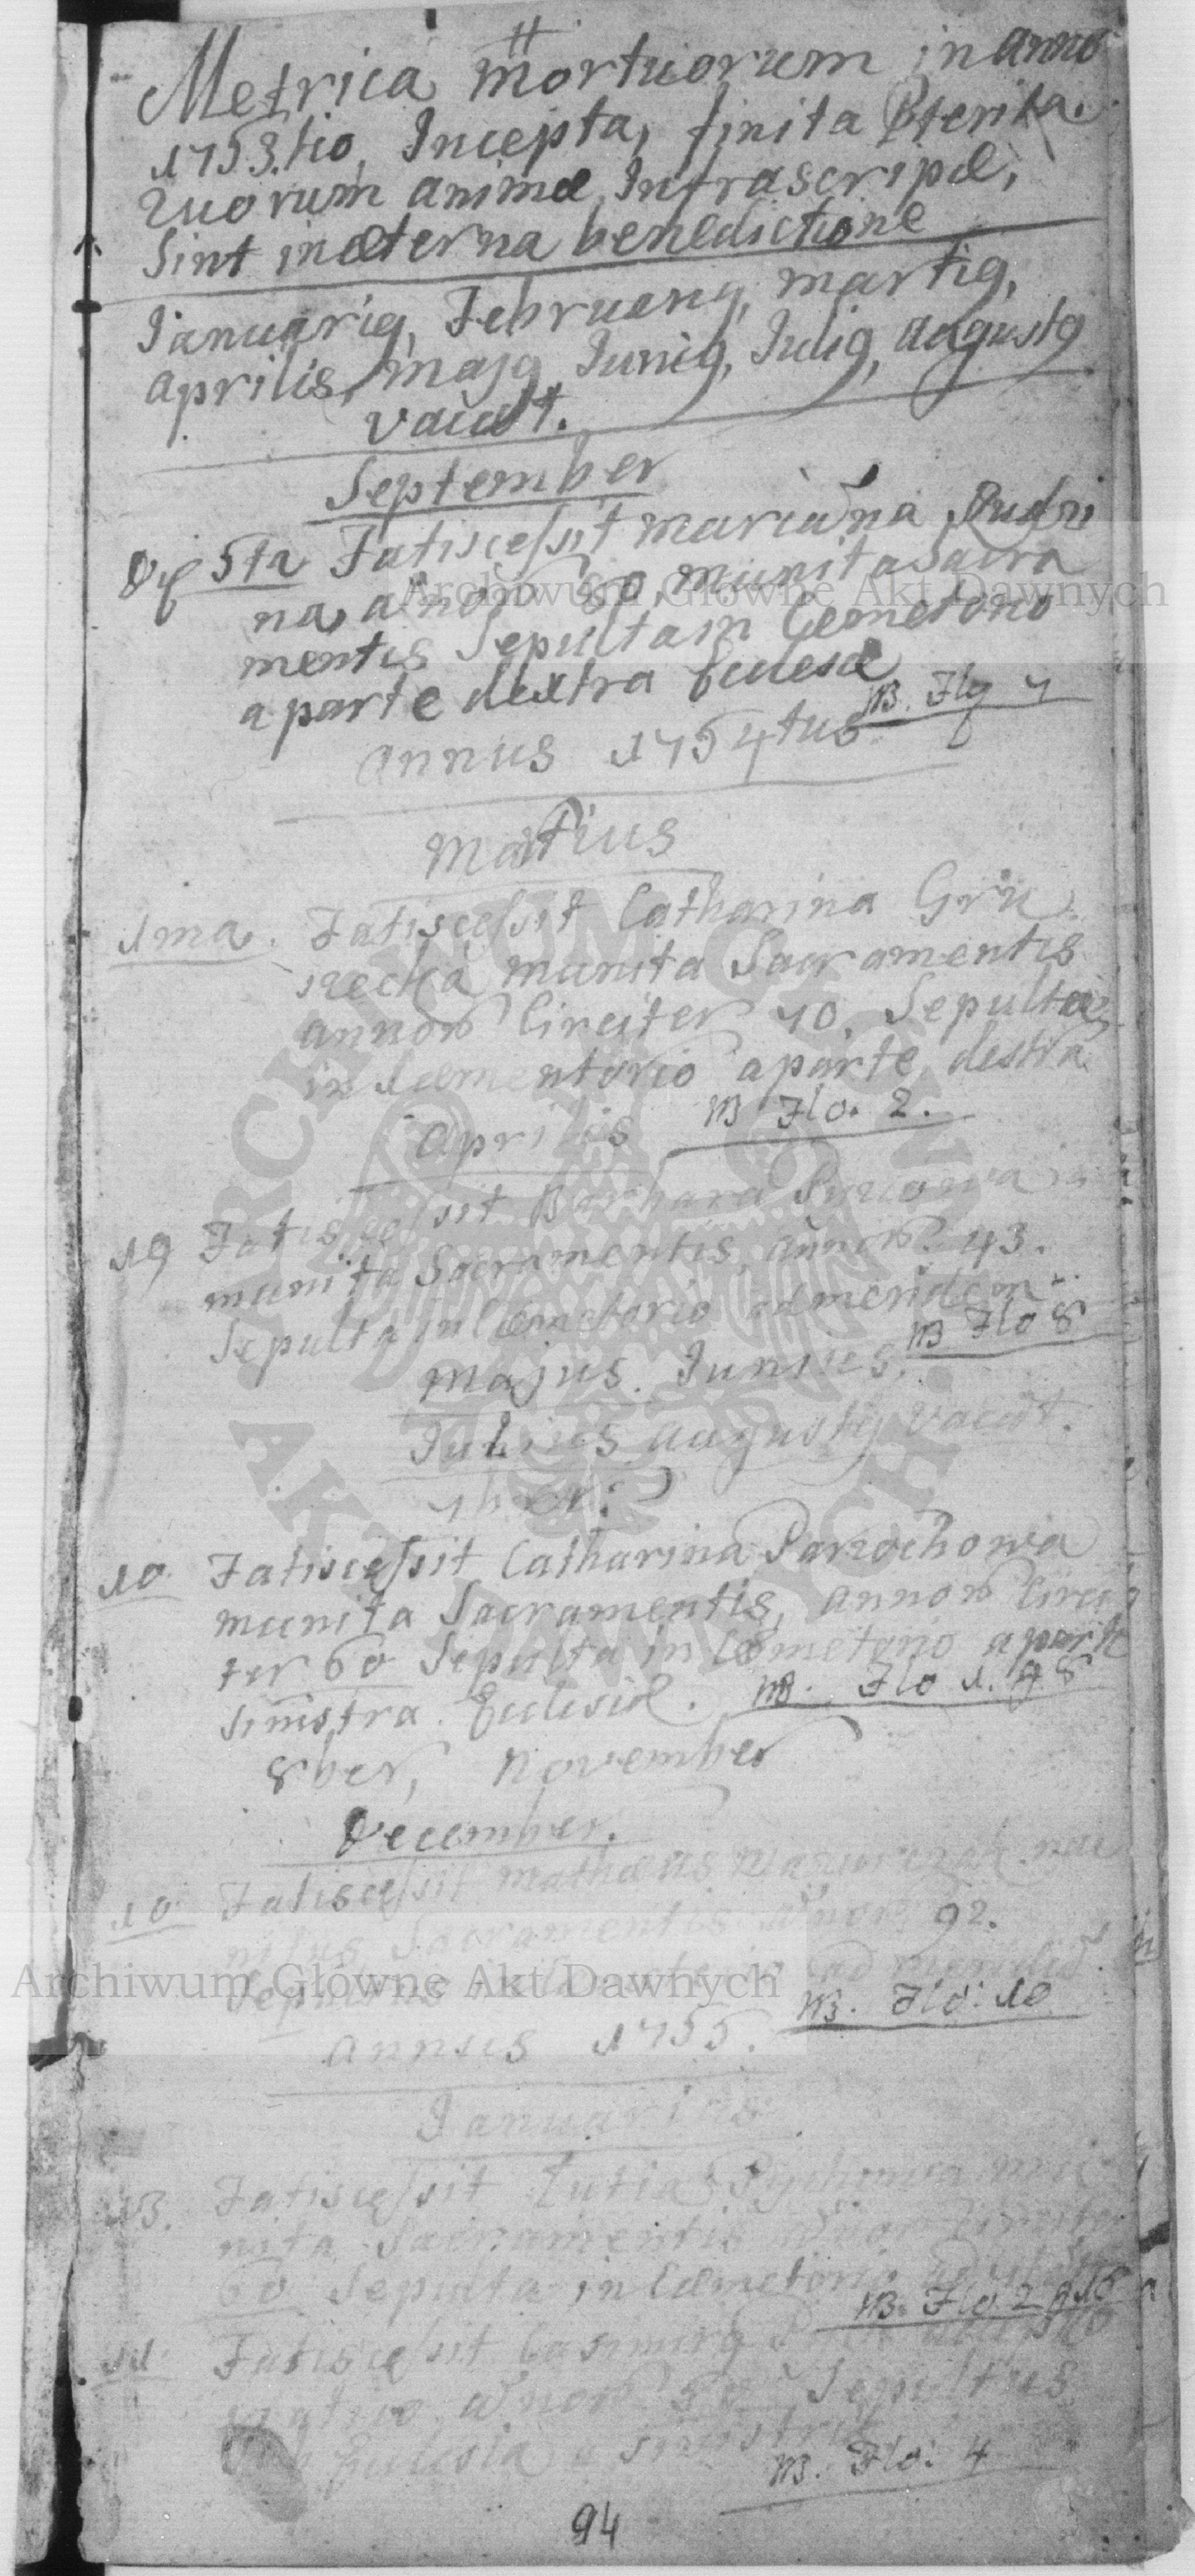 Metrica Mortuorum in anno
1753.tio, Incepta, finita Pterita.
Quorum animæ Infrascripæ,
Sint in æterna benedictione
Januarig, Februarig, martig,
Aprilis, majg Junig, Julig, augustg
vacat.
September
Die 5ta Fatiscessit Marianna Pudri
na, annor 80, munita Sacra
mentis Sepulta in Cemeterio
a parte dextra Eclesiæ
NB. Flg 7
Annus 1754tus
Martius
1ma. Fatiscessit Catharina Gru
szecka munita Sacramentis
annor Circiter 70. Sepulta
in Cæmentorio a parte destra
NB Flo. 2.
Aprilis
19 Fatiscessit Barbara
munita Sacramentis, annor 43.
Sepulta in Cæmetorio ad meridem
NB Flo 8
Majus. Junius.
Julius augustg vacat.
7ber:
10. Fatiscessit Catharina Parzochowa
munita Sacramentis, annor Circi
ter 60 Sepulta in Cœmetorio a parte
sinistra Eclesiæ. NB. Flo 1. g 8
8ber, November
December.
10 Fatiscessit Mathæus mu
nitus Sacramentis annor 92.
Sepultus ad meridie
NB. Flo. 10
Annus 1755.
Januarius
13. Fatiscessit Lutia mu
nita Sacramentis annor Circiter
60 Sepulta in Cæmetorio
NB. Flo 2 g 15
11. Fatiscessit Casimirg
annor 50 Sepultus
Eclesia a sinistris
NB. Flo. 4
94
Archiwum Główne Akt Dawnych
Archiwum Główne Akt Dawnych
ARCHIWUM GŁÓWNE
AKT DAWNYCH